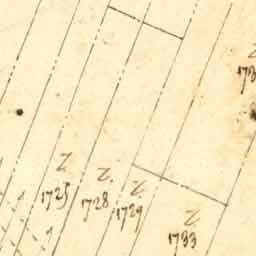 Z.
1725
Z.
1728
Z.
1729
Z.
1733